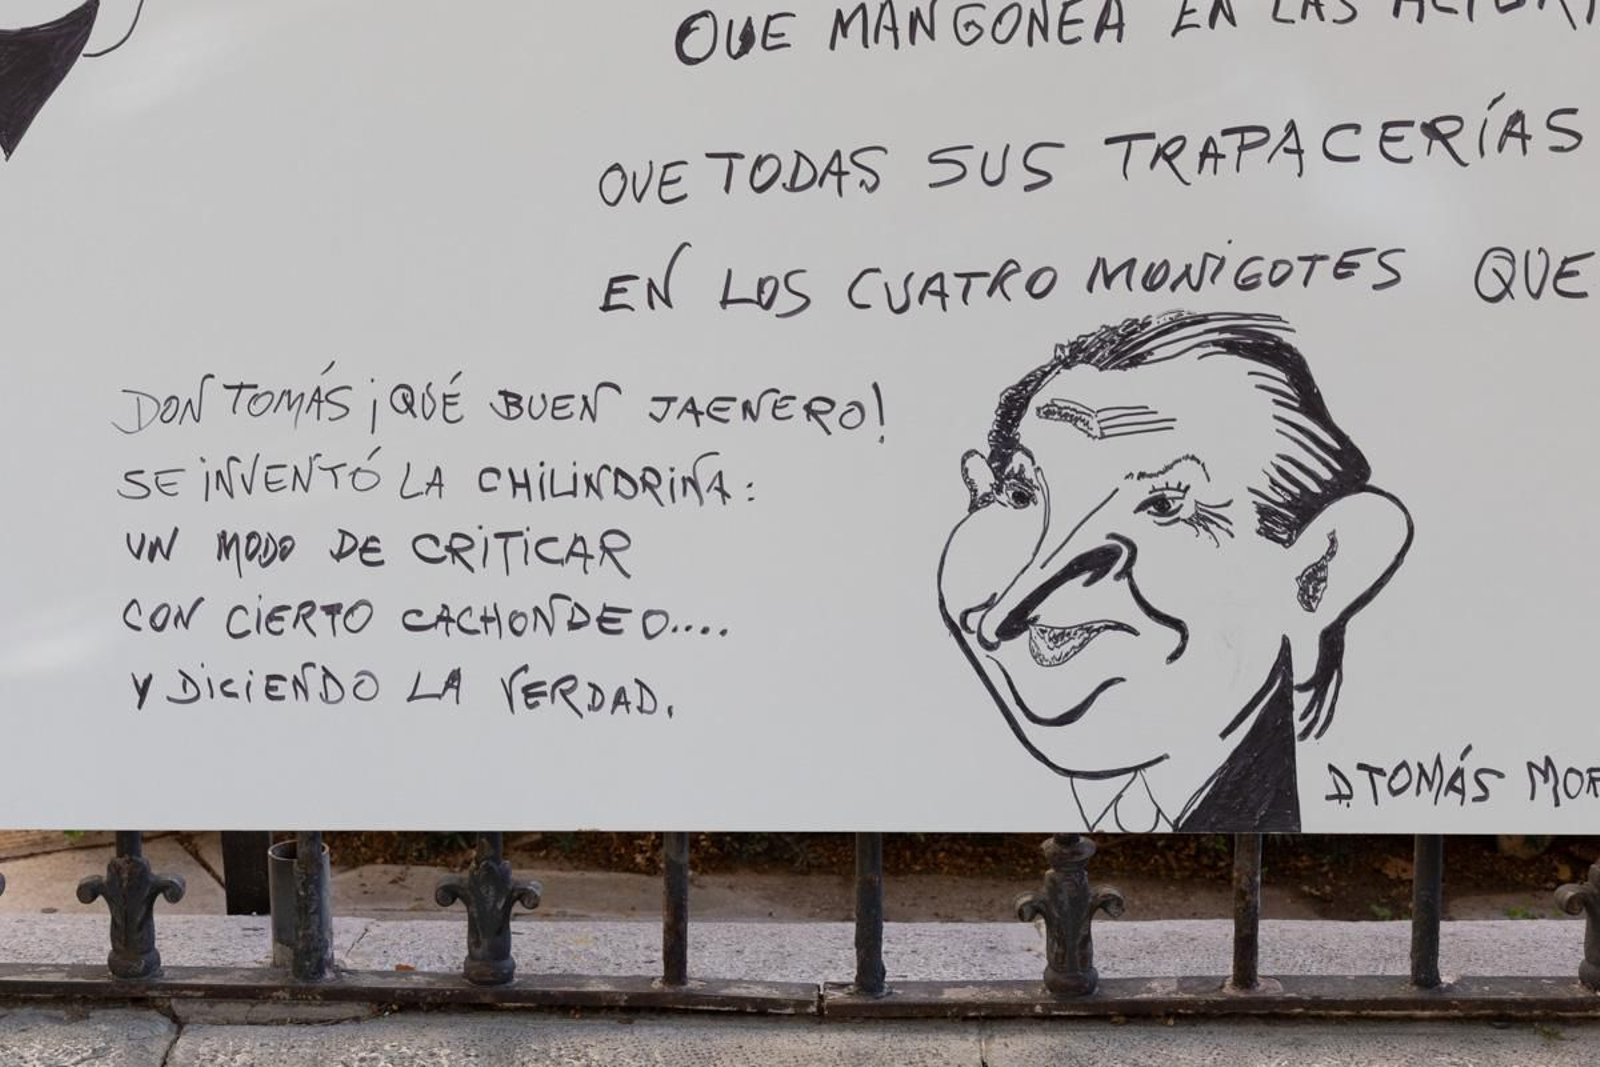 QUE MANGONEA EN LAS
QUE TODAS SUS TRAPACERÍAS
EN LOS CUATRO MONIGOTES QUE
DON TOMÁS ¡QUÉ BUEN JAENERO!
SE INVENTÓ LA CHILINDRINA:
UN MODO DE CRITICAR
CON CIERTO CACHONDEO....
Y DICIENDO LA VERDAD.
D. TOMÁS